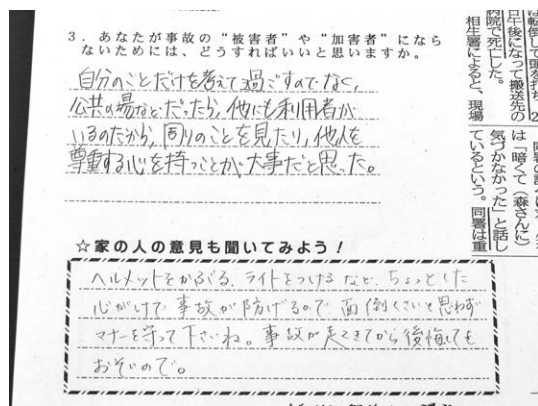 3．あなたが事故の“被害者”や“加害者”になら
ないためには、どうすればいいと思いますか。
自分のことだけを考えて過ごすのでなく、
公共の場などだったら、他にも利用者が
いるのだから、周りのことを見たり、他人を
尊重する心を持つことが大事だと思った。
☆家の人の意見も聞いてみよう！
ヘルメットをかぶる、ライトをつける など、ちょっとした
心がけで 事故が防げるので 面倒くさいと思わず
マナーを守って下さいね。事故が起きてから後悔しても
おそいので。
は転倒して頭を打ち、2
日午後になって搬送先の
病院で死亡した。
相生署によると、現場
は「暗くて（森さんに）
気づかなかった」と話し
ているという。同署は重